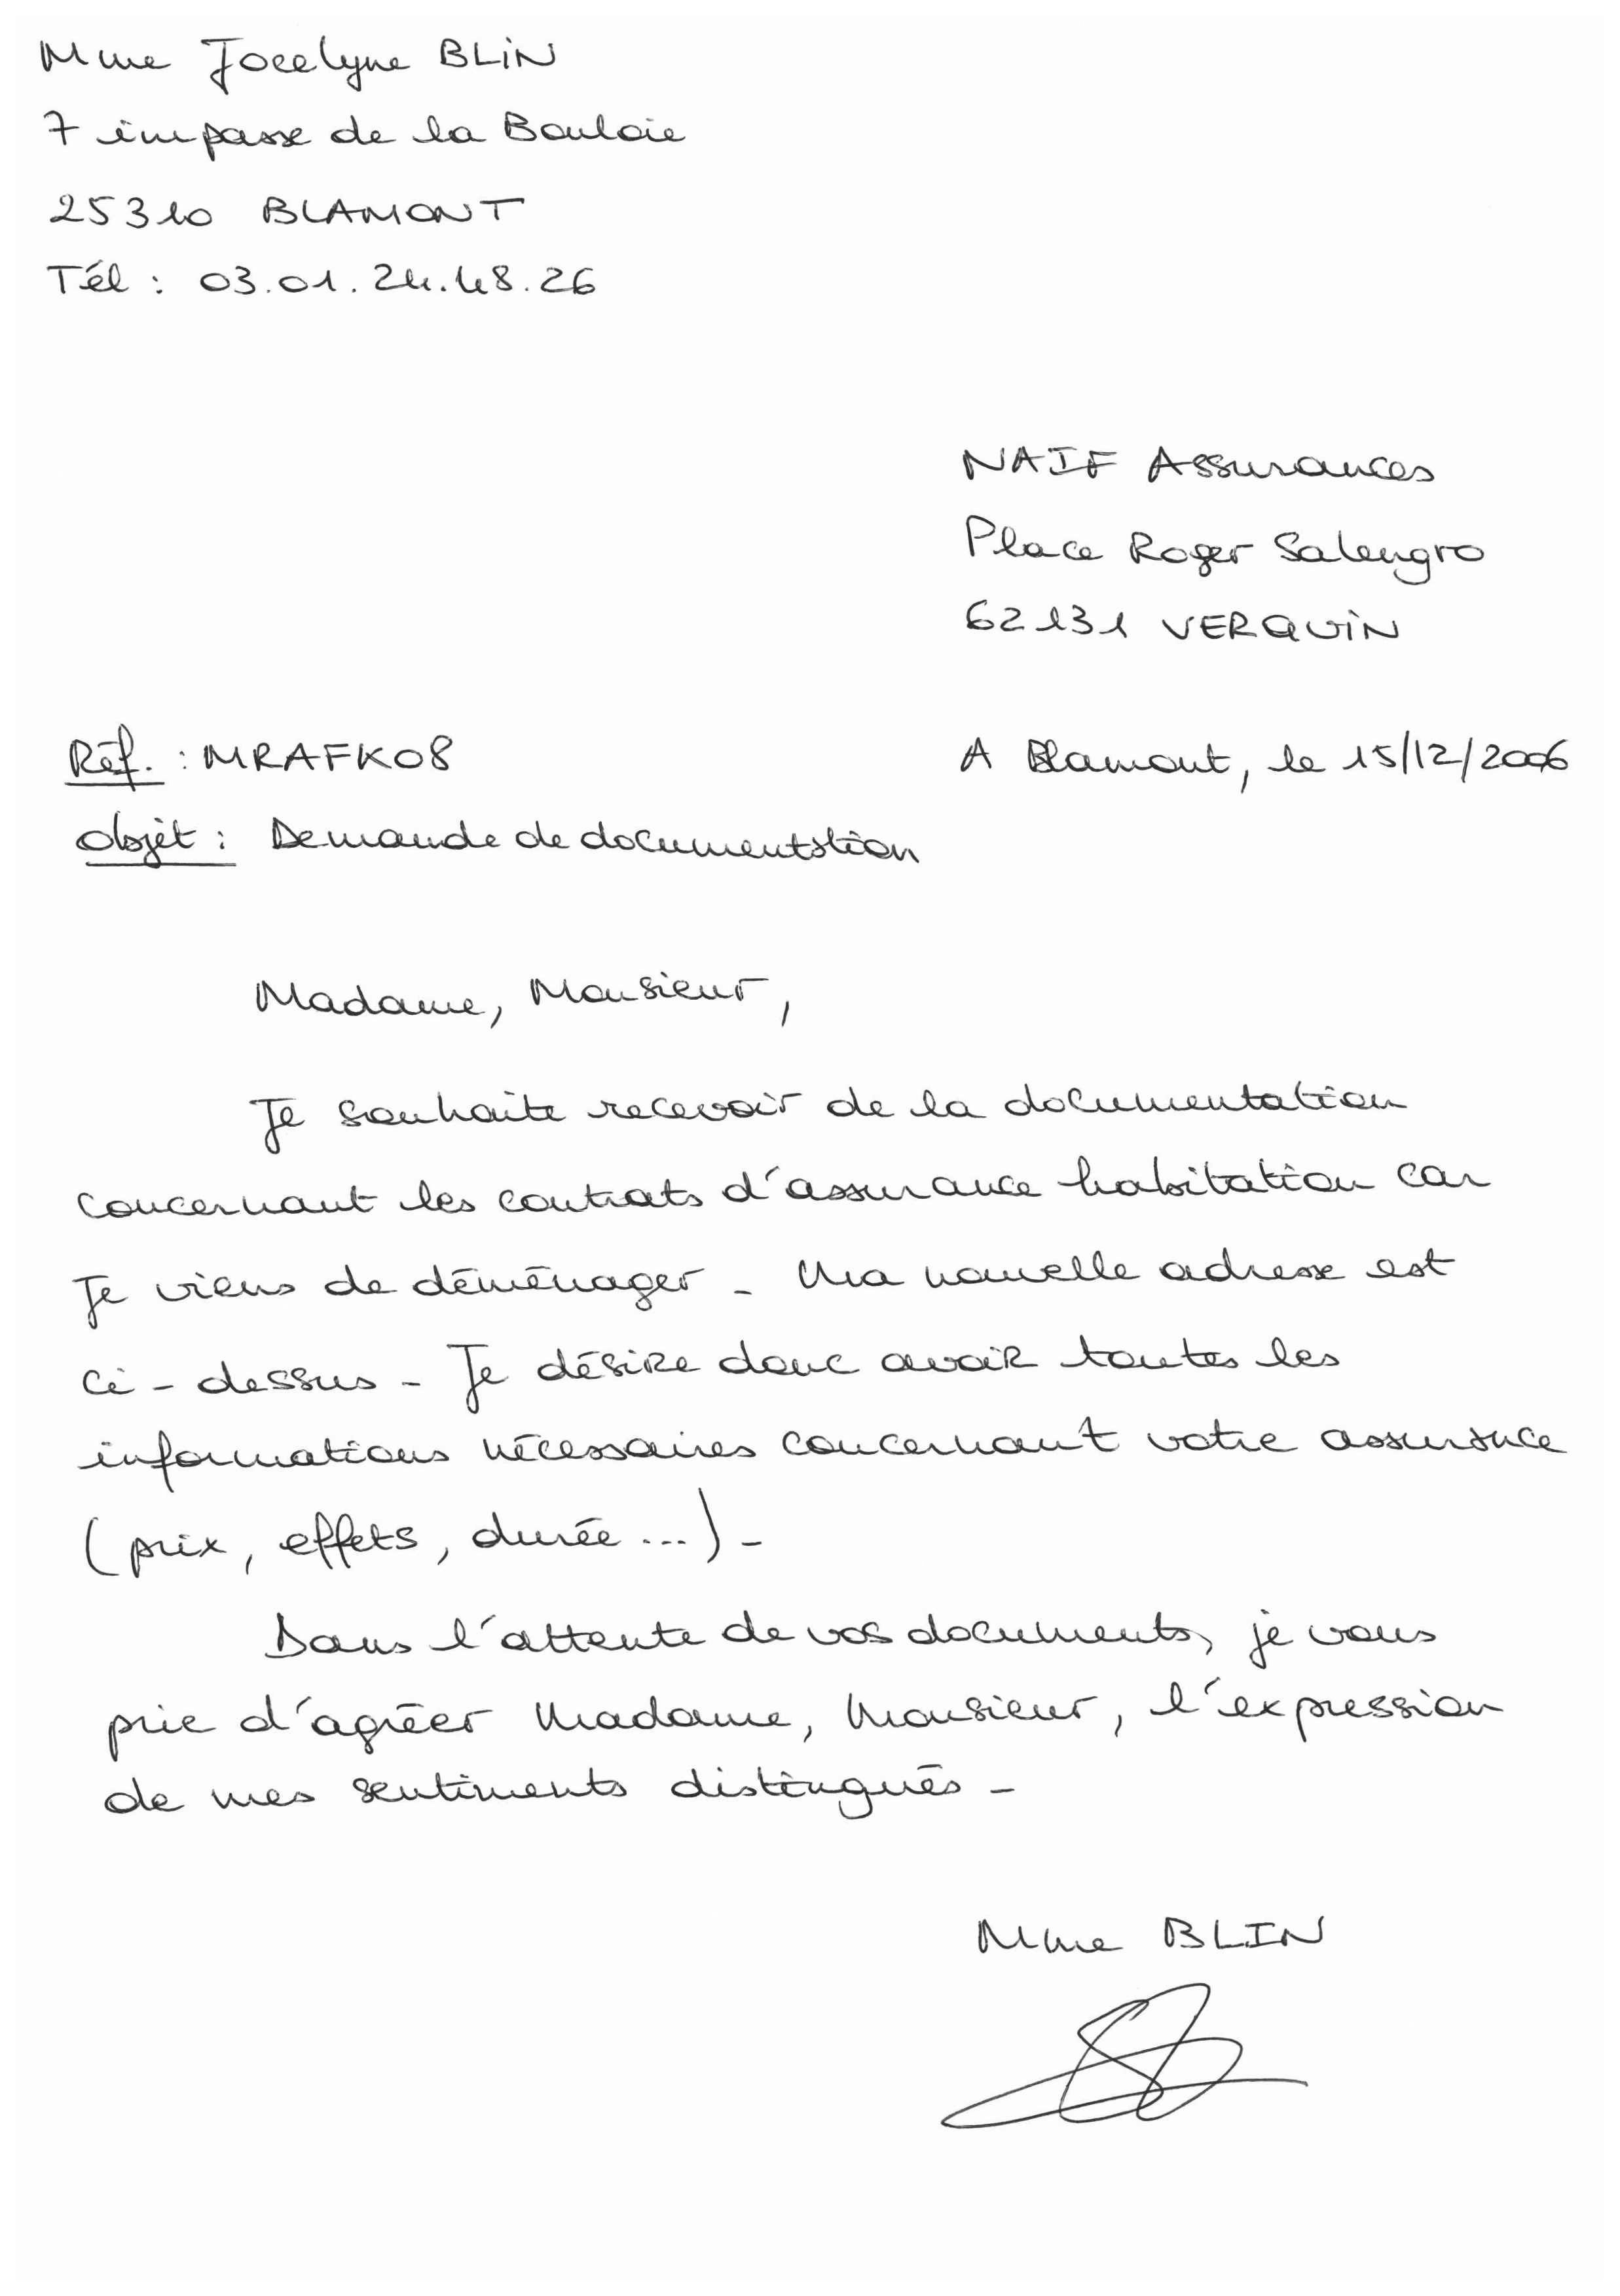 Mme Jocelyne BLIN
7 impasse de la Bouloie
25310 BLAMONT
Tél : 03.01.24.48.26
NAIF Assurances
Place Roger Salengro
62131 VERQUIN
Réf. : MRAFK08
A Blamont, le 15/12/2006
Objet : Demande de documentation
Madame, Monsieur,
Je souhaite recevoir de la documentation
concernant les contrats d'assurance habitation car
Je viens de déménager. Ma nouvelle adresse est
ci-dessus. Je désire donc avoir toutes les
informations nécessaires concernant votre assurance
(prix, effets, durée ...).
Dans l'attente de vos documents, je vous
prie d'agréer Madame, Monsieur, l'expression
de mes sentiments distingués.
Mme BLIN